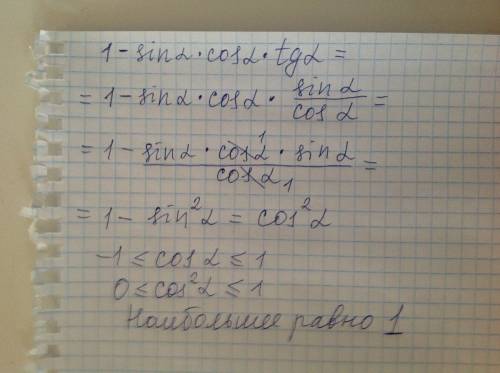 1 - sinα · cosα · tgα =
= 1 - sinα · cosα · sinα/cosα =
= 1 - (sinα · cosα¹ · sinα)/(cosα₁) =
= 1 - sin²α = cos²α
-1 ≤ cosα ≤ 1
0 ≤ cos²α ≤ 1
Наибольшее равно 1